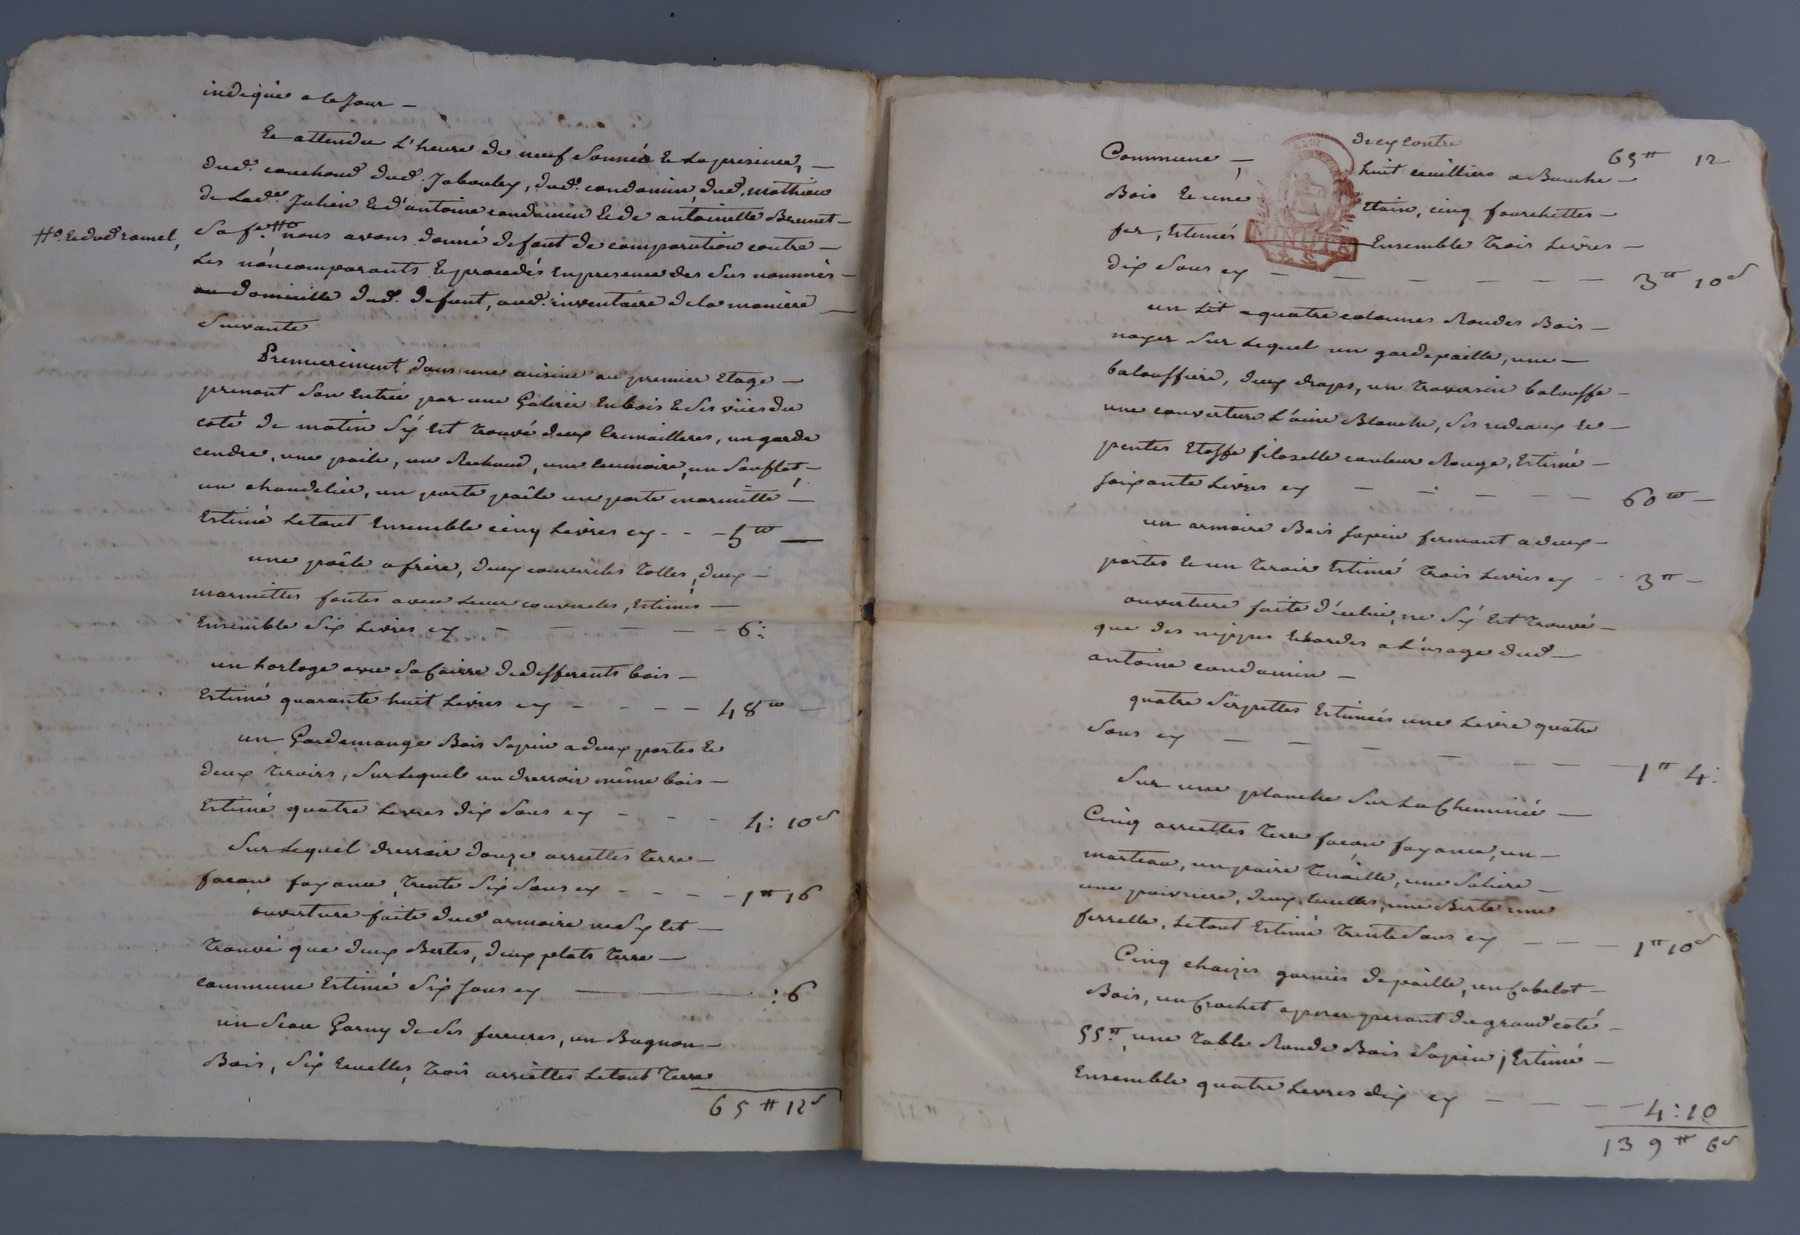 indiquée a ce Jour —
Et attendu L'heure de neuf Sonnée Et La présence, —
dud. couchoud dud. Jabouley, dud. condamin, dud. mathieu
de Lad. Julien Et d'antoine condamin Et de antoinette Brunet —
#o. Et dud ramel,
Sa fe. #o nous avons donné defaut de comparution contre —
Les noncomparants Et procedés En presence des Sus nommés —
au domicille dud. defunt, aud. inventaire de la maniere —
Suivante
Premierement dans une cuisine au premier Etage —
prenant Son Entrée par une Galerie En bois Et Ses vües du
coté de matin S'y Est trouvé deux Cremailleres, un garde
cendre, une poile, un Rechaud, une Ecumoire, un Souflet —
un chandelier, un porte poële un porte marmitte —
Estimé Le tout Ensemble cinq Livres cy - - - 5 tt —
une poële a frire, deux couvercles tolles, deux —
marmittes fontes avec Leur couvercles, Estimés —
Ensemble Six Livres cy — — — — — 6:
un horloge avec Sa Caisse de differents bois —
Estimé quarante huit Livres cy — — — — 48 tt —
un Gardemange Bois Sapin a deux portes Et
deux tiroirs, Sur Lequel un dressoir même bois —
Estimé quatre Livres dix Sous cy — — — 4: 10 s
Sur Lequel dressoir douze assiettes terre —
façon fayance, trente Six Sous cy — — — — 1 tt 16
ouverture faite dud armoire ne S'y Est —
trouvé que deux Bertes, deux plats terre —
commune Estimé Six Sous cy — : 6
un Seau Garny de Ses ferrures, un Bagnon —
Bois, Six Ecuelles, trois assiettes Le tout terre
65 tt 12 s
de cy contre 65 tt 12
Commune, — huit cuilliere a Bouche —
Bois Et une Etain, cinq fourchettes —
fer, Estimés — Ensemble trois Livres —
MINUTE
dix Sous cy — — — — — — 3 tt 10 s
un Lit a quatre colonnes Rondes Bois —
noyer Sur Lequel un gardepaille, une —
balouffiere, deux draps, un traversin balouffe —
une couverture L'aine Blanche, Ses rideaux Et —
pentes Etoffe filoselle couleur Rouge, Estimé —
Soixante Livres cy — — — — — 60 tt —
un armoire Bois Sapin fermant a deux —
portes Et un tiroir Estimé trois Livres cy — 3 tt —
ouverture faite d'icelui, ne S'y Est trouvé —
que des nippes Et hardes a L'usage dud —
antoine condamin —
quatre Serpettes Estimées une Livre quatre
Sous cy — — — — — — — 1 tt 4:
Sur une planche Sur La Cheminée —
Cinq assiettes terre façon fayance, un —
marteau, un paire tinaille, une Saliere —
une poivriere, deux Ecuelles, une Berte une
ferrelle, Le tout Estimé trente Sous cy — — — 1 tt 10 s
Cinq chaizes garnies de paille, un Cabelot —
Bois, un Crochet a peser pesant du grand coté —
55 tt, une table Ronde Bois Sapin, Estimé —
Ensemble quatre Livres dix cy — — — — 4: 10
139 tt 6 s